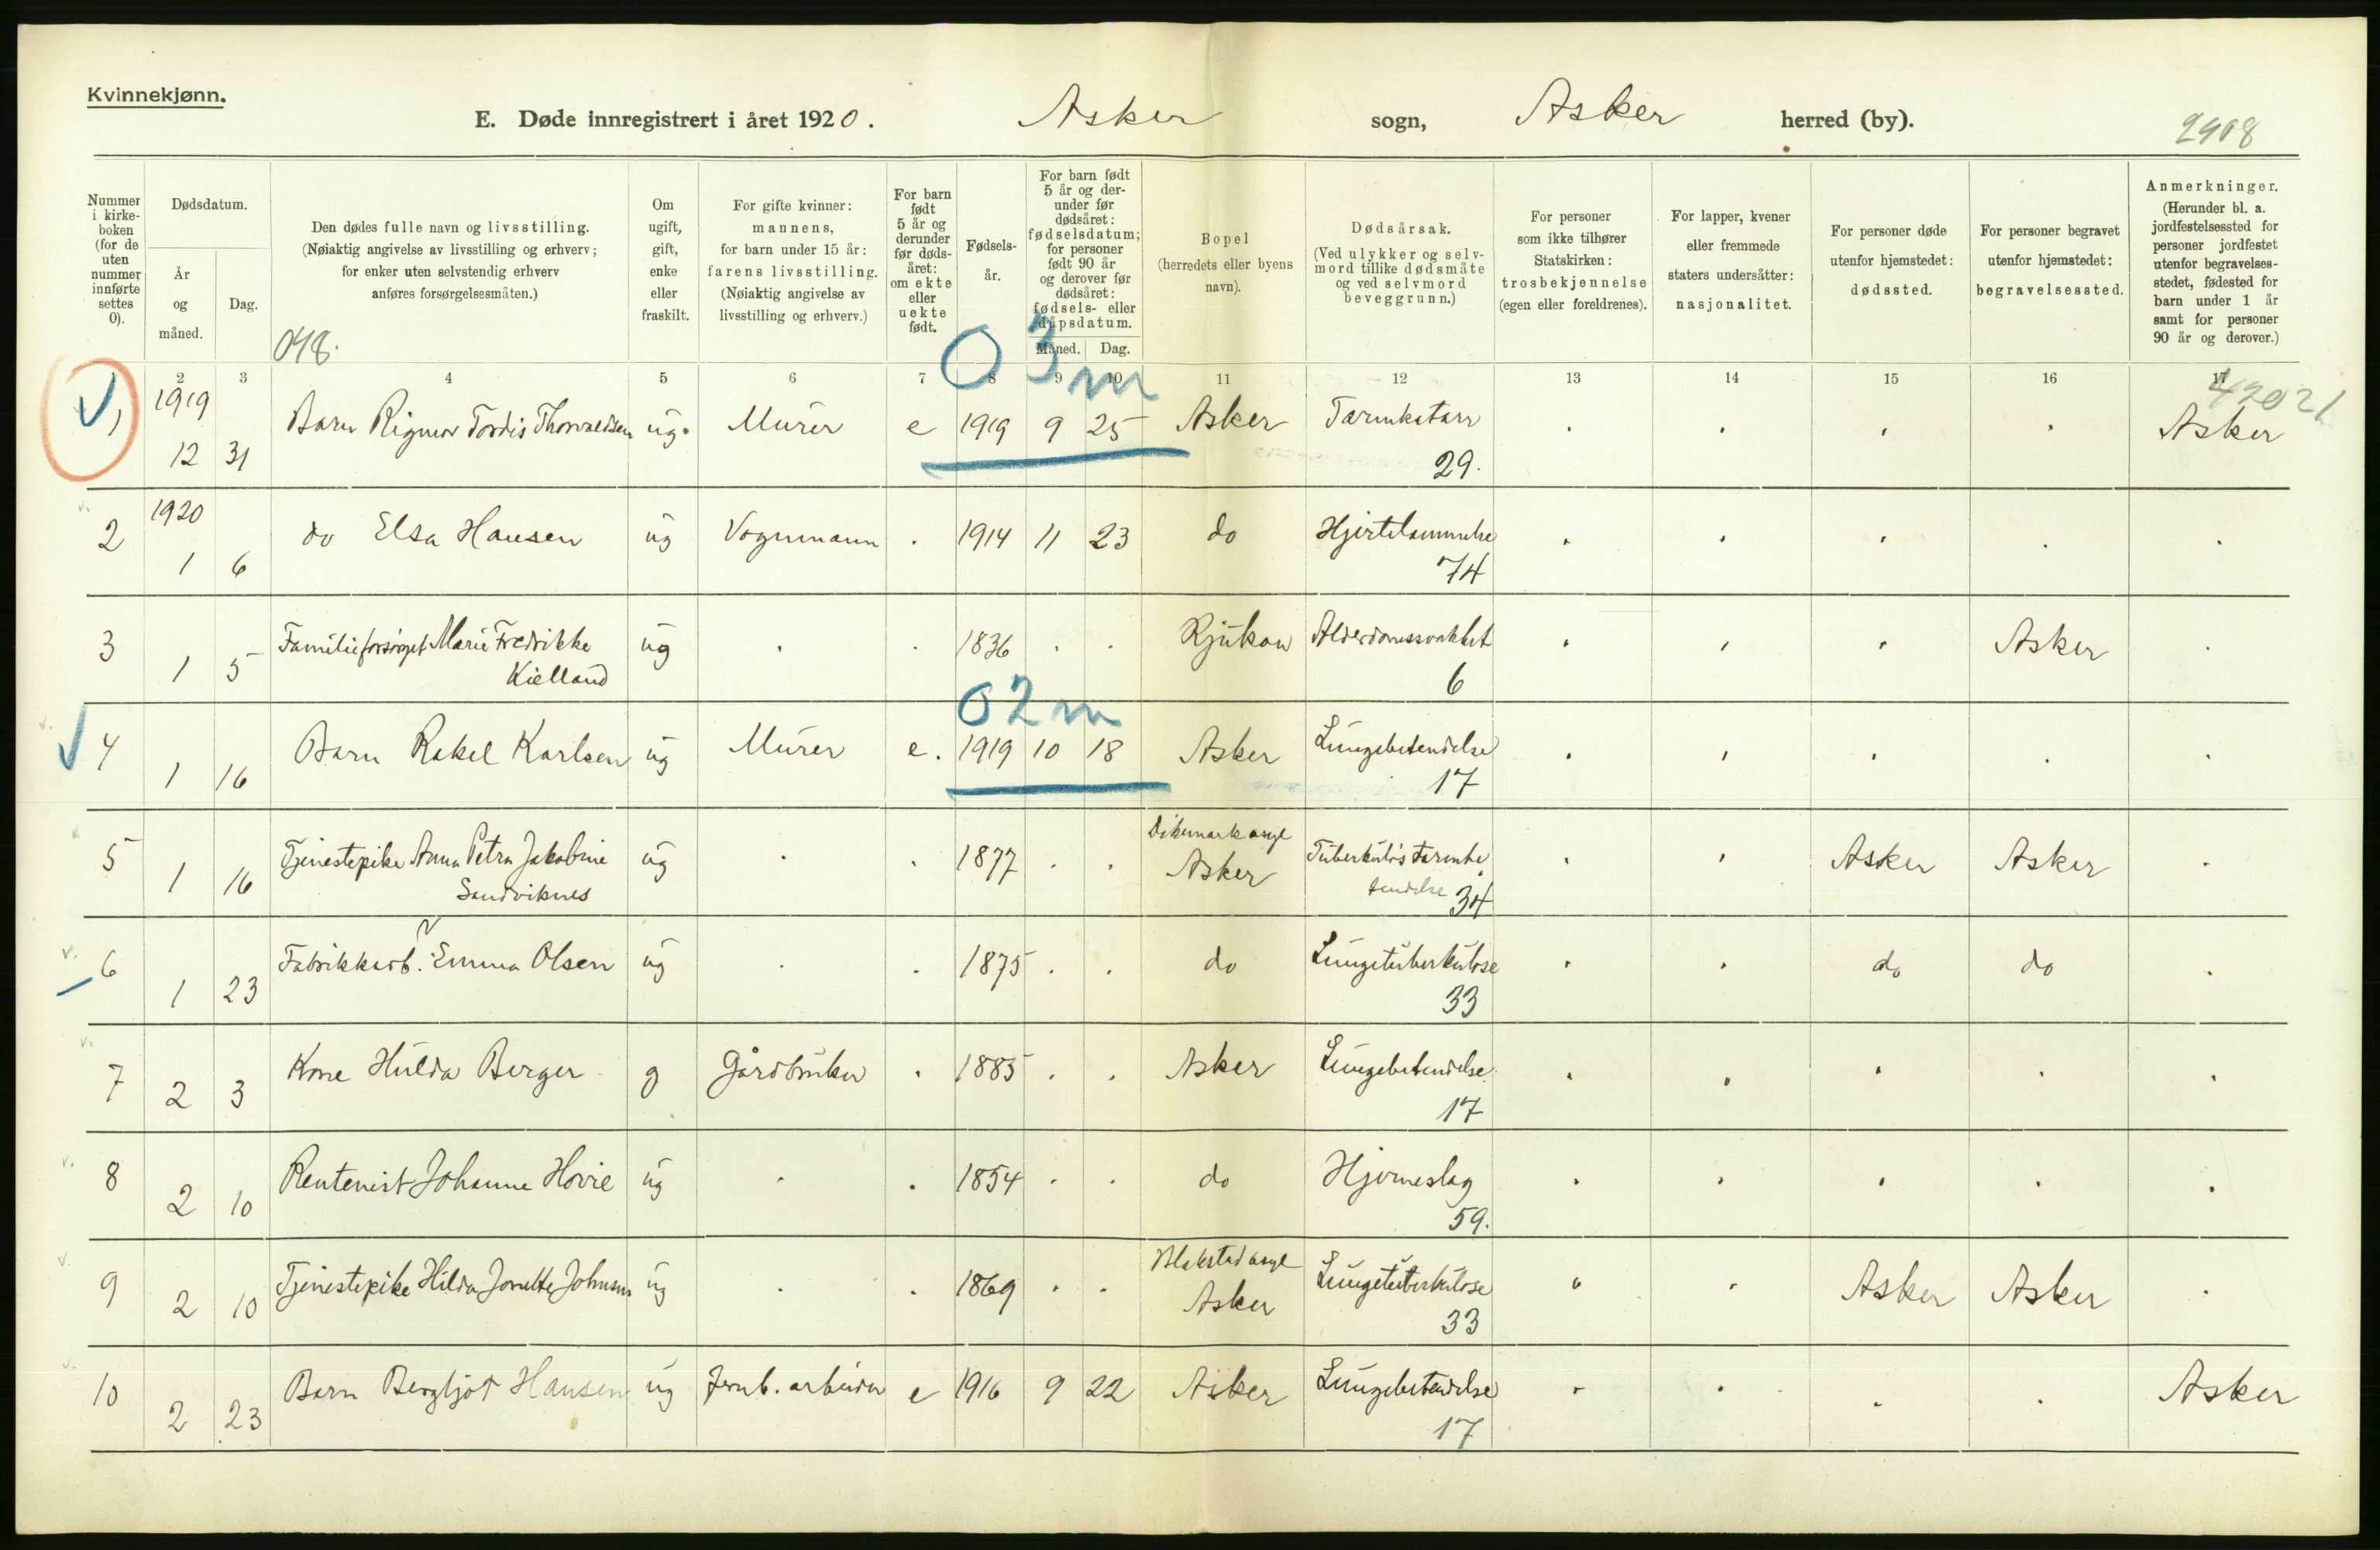 Kvinnekjønn.
E. Døde innregistrert i året 1920. Asker sogn, Asker herred (by).
2908
Nummer i kirke-boken (for de uten nummer innførte settes 0).
Dødsdatum.
År og måned.
Dag.
Den dødes fulle navn og livsstilling.
(Nøiaktig angivelse av livsstilling og erhverv;
for enker uten selvstendig erhverv
anføres forsørgelsesmåten.)
048.
Om ugift, gift, enke eller fraskilt.
For gifte kvinner:
mannens,
for barn under 15 år:
farens livsstilling.
(Nøiaktig angivelse av
livsstilling og erhverv.)
For barn født 5 år og derunder før døds-året: om ekte eller uekte født.
Fødsels-år.
For barn født 5 år og der-under før dødsåret: fødselsdatum; for personer født 90 år og derover før dødsåret: fødsels- eller dåpsdatum.
Måned. Dag.
Bopel
(herredets eller byens
navn).
Dødsårsak.
(Ved ulykker og selv-
mord tillike dødsmåte
og ved selvmord
beveggrunn.)
For personer
som ikke tilhører
Statskirken:
trosbekjennelse
(egen eller foreldrenes).
For lapper, kvener
eller fremmede
staters undersåtter:
nasjonalitet.
For personer døde
utenfor hjemstedet:
dødssted.
For personer begravet
utenfor hjemstedet:
begravelsessted.
Anmerkninger.
(Herunder bl. a.
jordfestelsessted for
personer jordfestet
utenfor begravelses-
stedet, fødested for
barn under 1 år
samt for personer
90 år og derover.)
1 2 3 4 5 6 7 8 9 10 11 12 13 14 15 16 17
03m
42021
1 1919 12 31 Barn Rigmor Tordis Thorvaldsen ug. Murer e 1919 9 25 Asker Tarmkatarr 29. Asker
2 1920 1 6 do Elsa Hansen ug Vognmann . 1914 11 23 do Hjertelammelse 74
3 1 5 Familieforsørget Marie Fredrikke Kielland ug 1836 Rjukan Alderdomssvakhet 6 Asker
02m
4 1 16 Barn Rakel Karlsen ug Murer e. 1919 10 18 Asker Lungebetendelse 17
5 1 16 Tjenestepike Anna Petra Jakobine Sandviknes ug 1877 Dikemark asyl Asker Tuberkuløs tarmbetendelse 34 Asker Asker
6 1 23 Fabrikkarb. Emma Olsen ug 1875 do Lungetuberkulose 33 do do
7 2 3 Kone Hulda Berger g Gårdbruker 1885 Asker Lungebetendelse. 17
8 2 10 Rentenist Johanne Hovie ug 1854 do Hjerneslag 59.
9 2 10 Tjenestepike Hilda Jonette Johnsen ug 1869 Blakstad asyl Asker Lungetuberkulose 33 Asker Asker
10 2 23 Barn Bergljot Hansen ug Jernb. arbeider e 1916 9 22 Asker Lungebetendelse 17 Asker